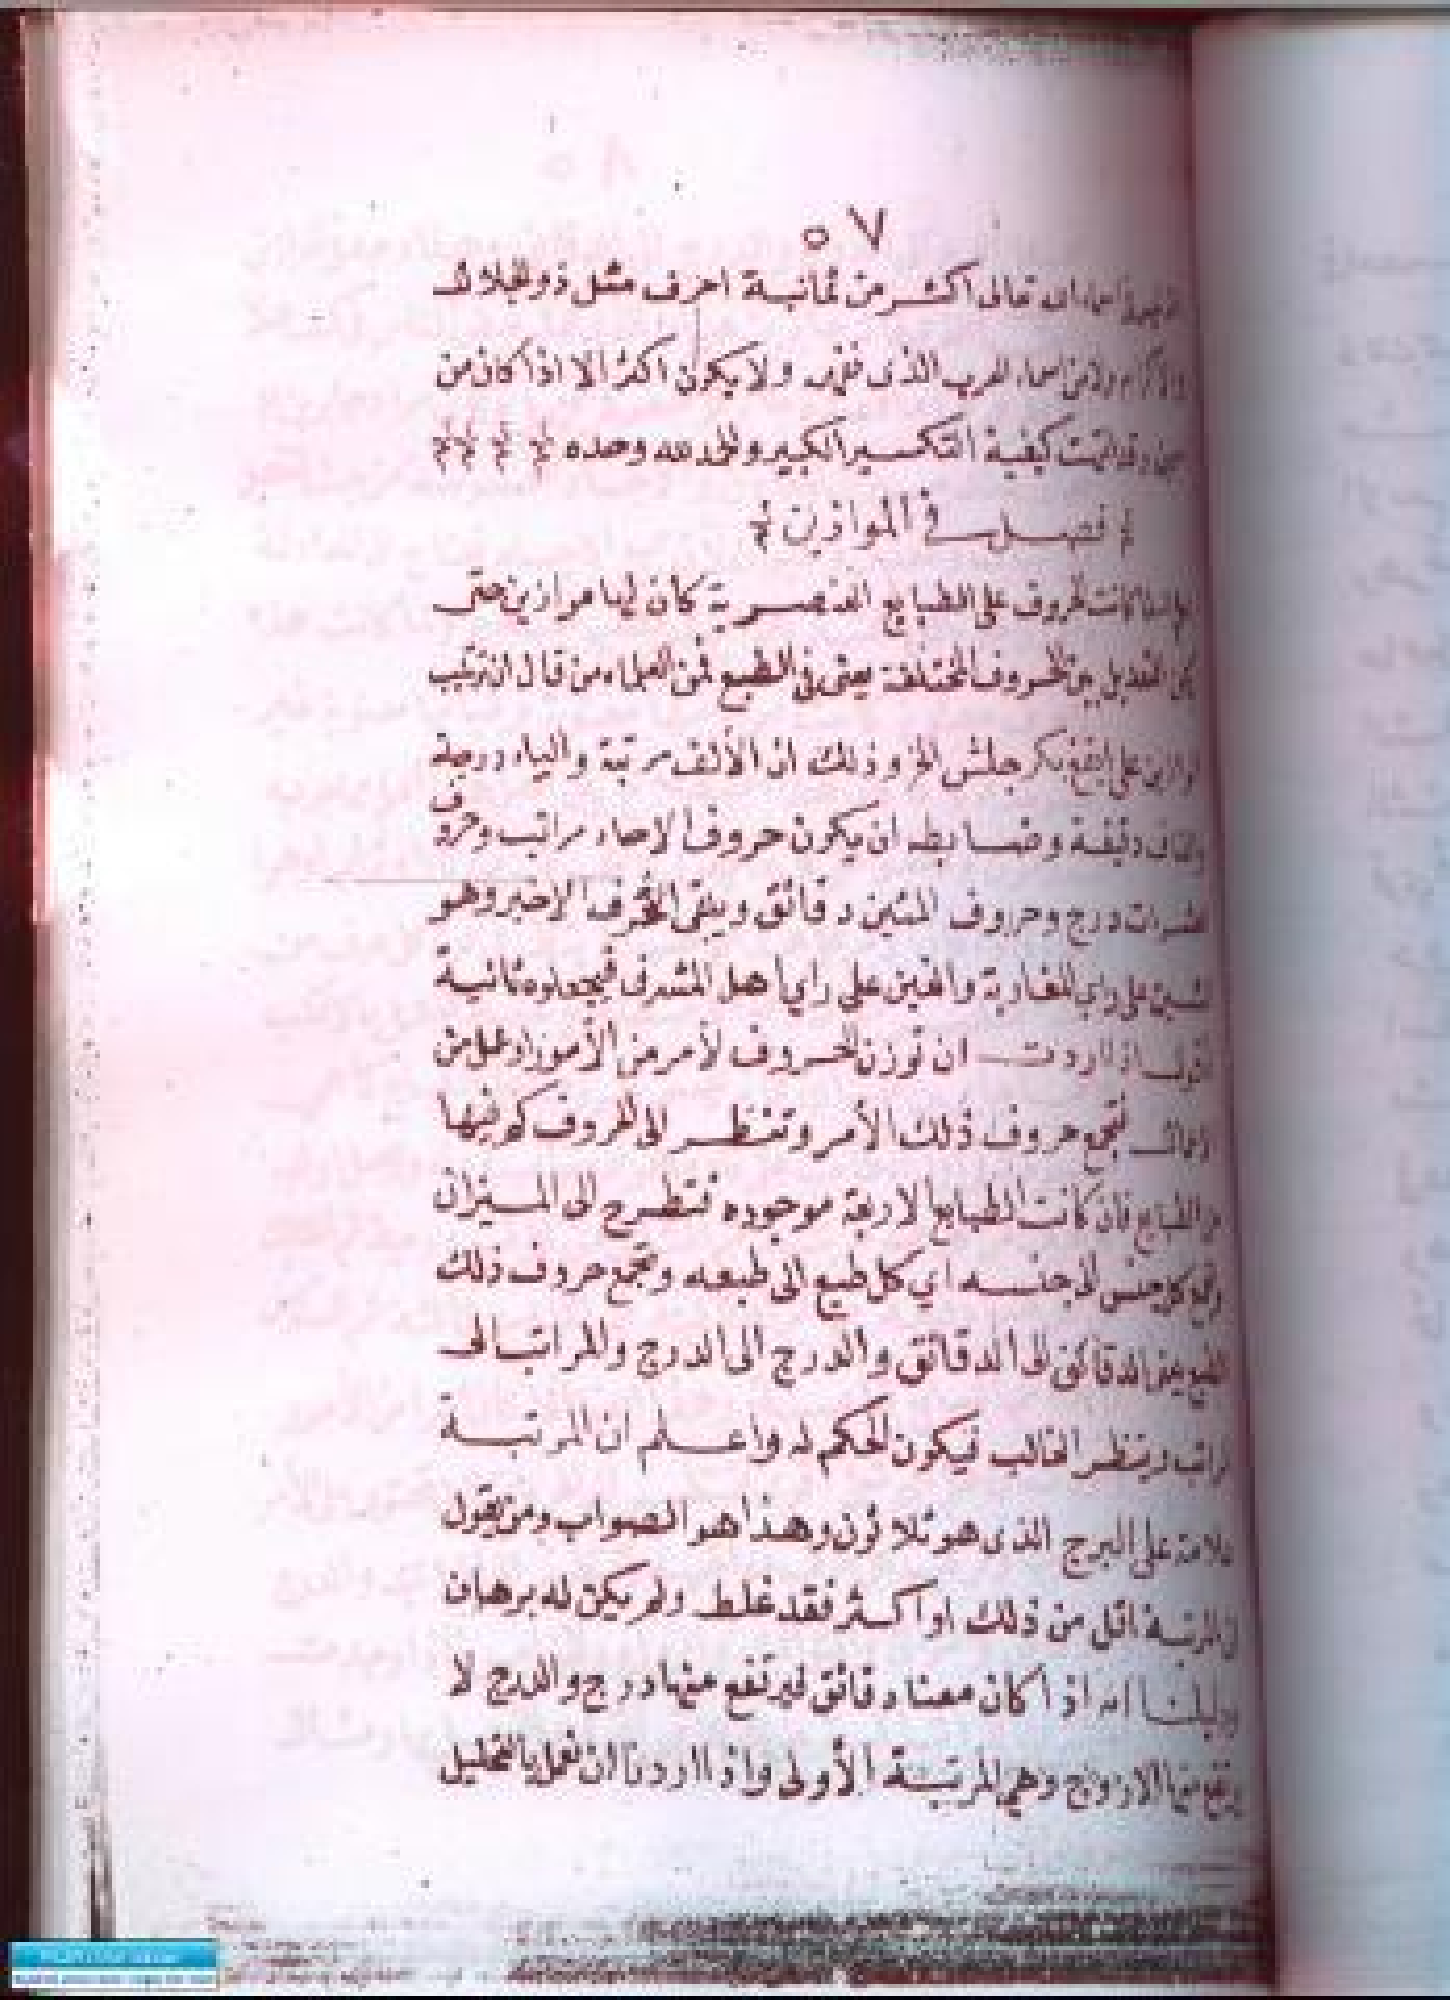 ٥٧
تعالى اكثر من ثمانية احرف مثل ذو الجلال
اسماء العرب الذى ولا يكون اكثر الا اذا كان من
كيفية التكسير الكبير والحمد لله وحده
فصل في الموازين
كانت الحروف على الطبايع العنصرية كان لها موازين حتى
التعديل بين الحروف المختلفة يعنى فى الطبع فمن العلماء من قال ان ترتيب
على ايقغ بكر جلش الخ وذلك ان الألف مرتبة والياء درجة
والقاف دقيقة وضابطه ان يكون حروف الاحاد مراتب وحروف
العشرات درج وحروف المئين دقائق ويبقى الحرف الاخير وهو
الشين على راي المغاربة والغين على راي أهل المشرق فيجعلوه ثانية
اذا اردت ان توزن الحروف لأمر من الأمور او عمل من
الاعمال فتجمع حروف ذلك الأمر وتنظر الى الحروف كم فيها
من الطبايع فان كانت الطبايع الاربعة موجوده فتطرح الى الميزان
كل جنس الى جنسه أي كل طبع الى طبعه وتجمع حروف ذلك
الطبع يعنى الدقائق الى الدقائق والدرج الى الدرج والمراتب الى
المراتب وينظر الغالب فيكون الحكم له واعلم ان المرتبة
علامة على البرج الذى هو ثلاثون وهذا هو الصواب ومن يقول
ان المرتبة اقل من ذلك او اكثر فقد غلط ولم يكن له برهان
ودليلنا انه اذا كان معنا دقائق فيرتفع منها درج والدرج لا
يرتفع منها الا البروج وهي المرتبة الأولى واذا اردنا ان نعمل بالتحليل